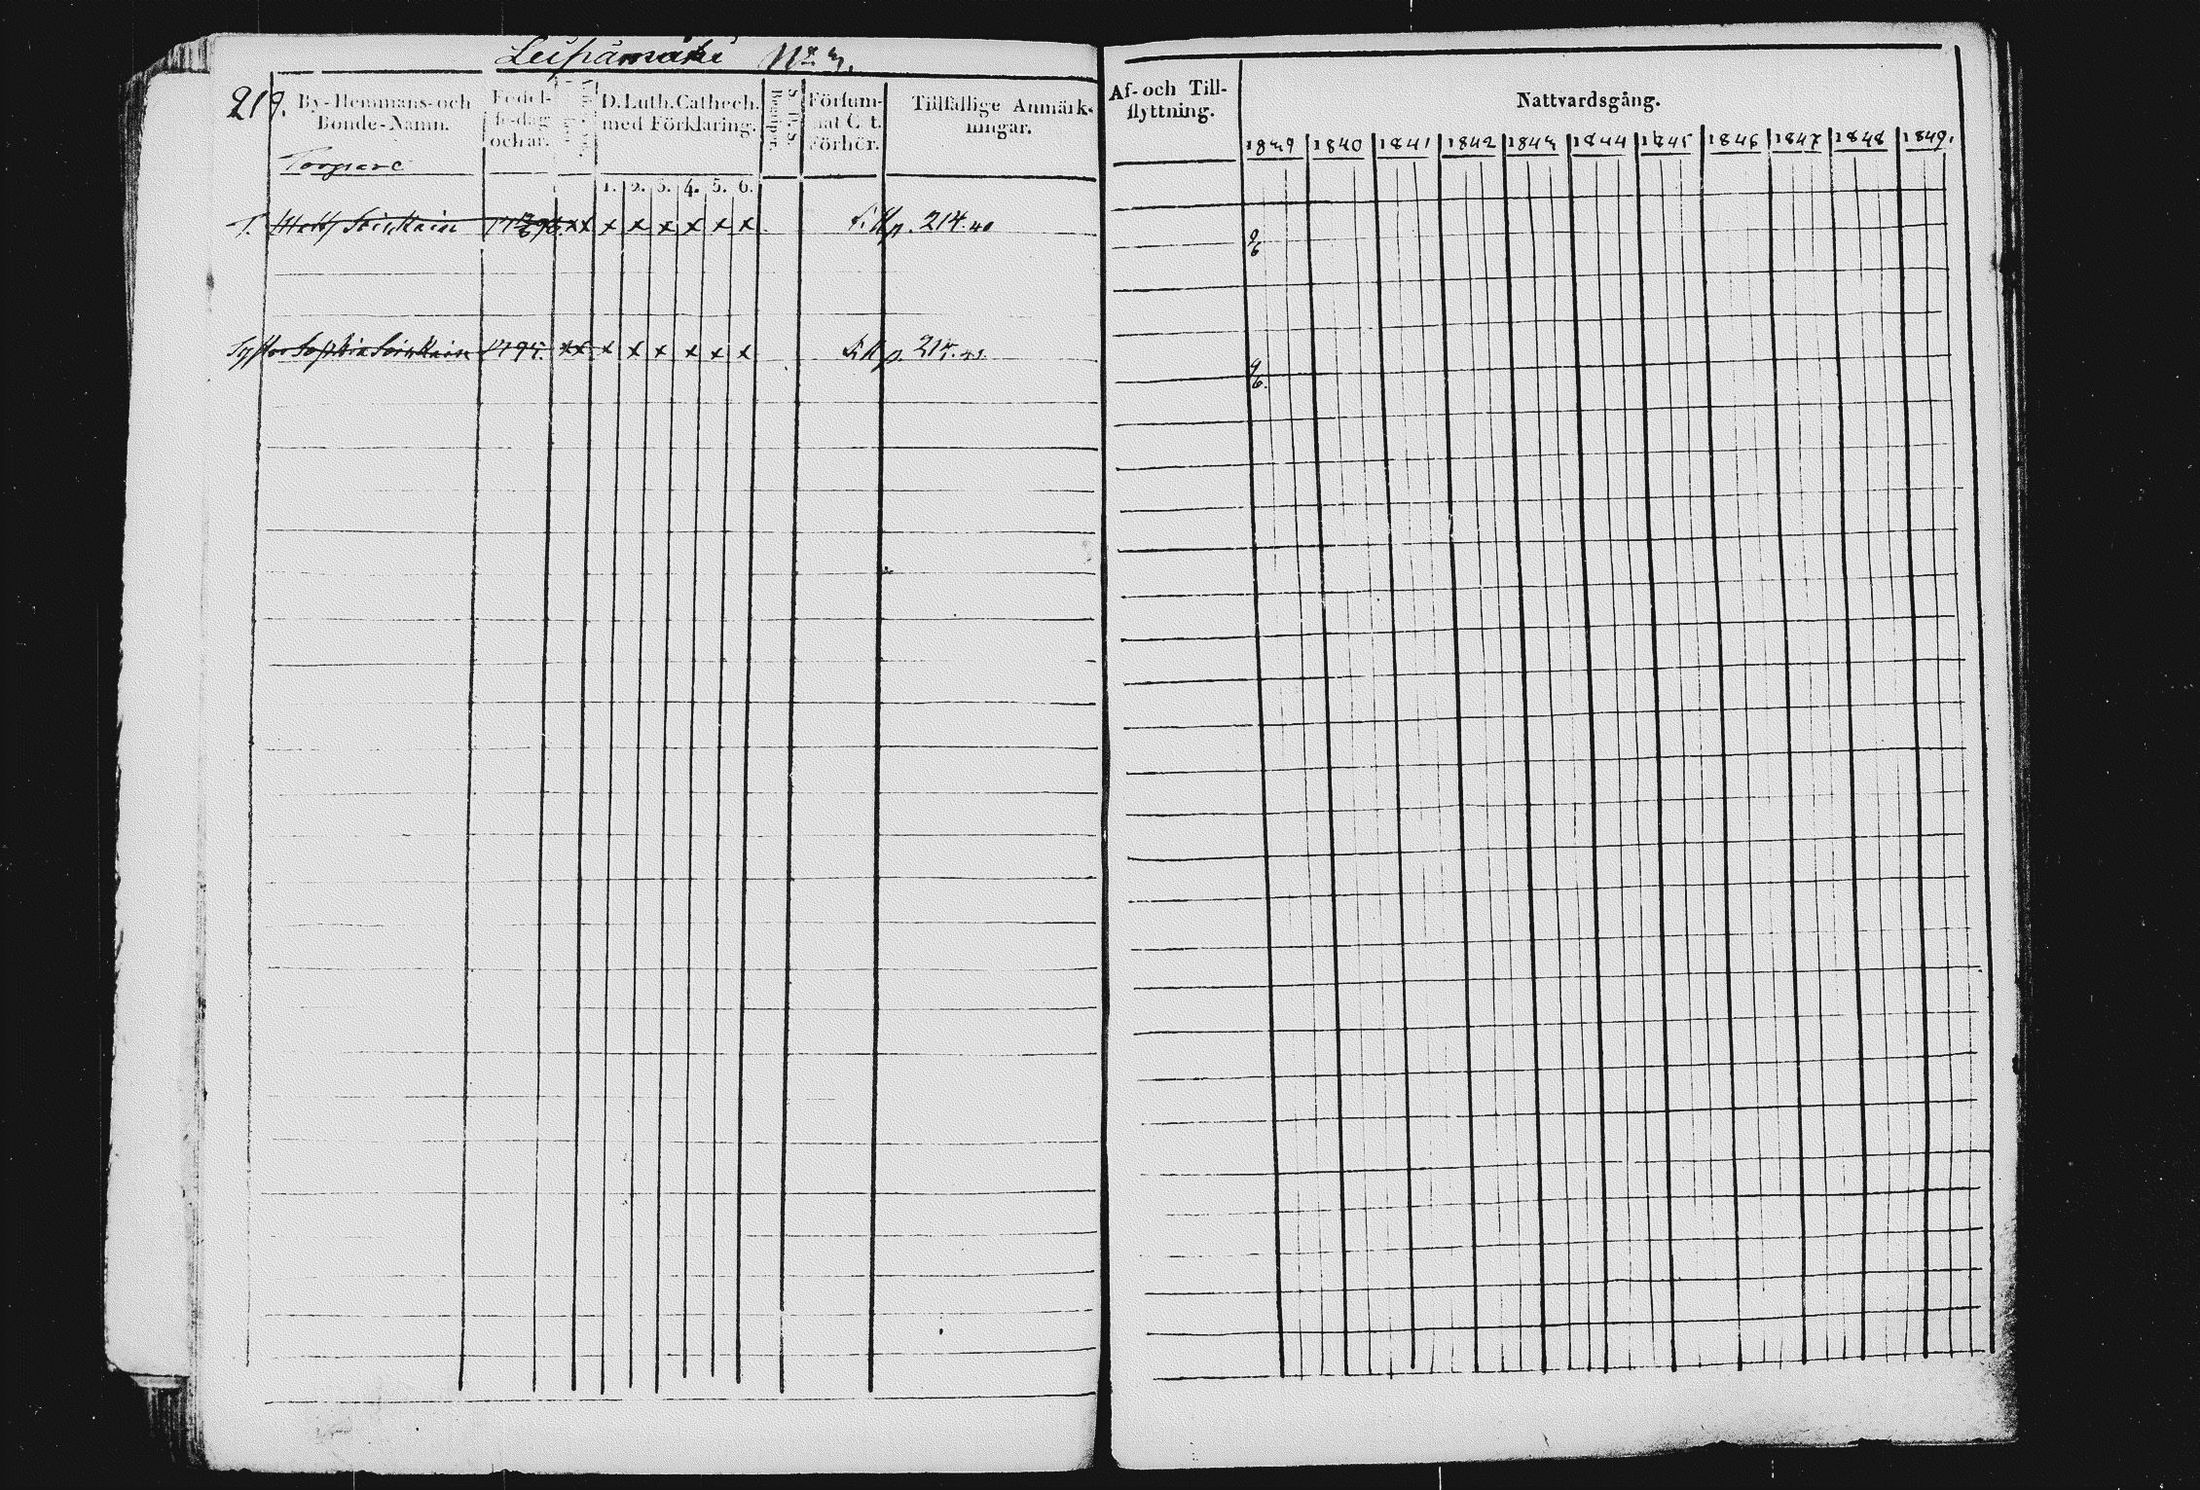 Leipämäki No 3.
219.
By-Hemmans-och
Bonde-Namn.
Födel-
se-dag
och år.
D. Luth. Cathech.
med Förklaring.
Försum-
mat Cat.
Förhör.
Tillfällige Anmärk-
ningar.
Torpare
1. 2. 3. 4. 5. 6.
T. Matts x x x x x x x x Till p. 214. 40
Syster Sophia 1795. x x x x x x x x Till p.
Af- och Till-
flyttning.
Nattvardsgång.
1839 1840 1841 1842 1843 1844 1845 1846 1847 1848 1849.
9/6
9/6.